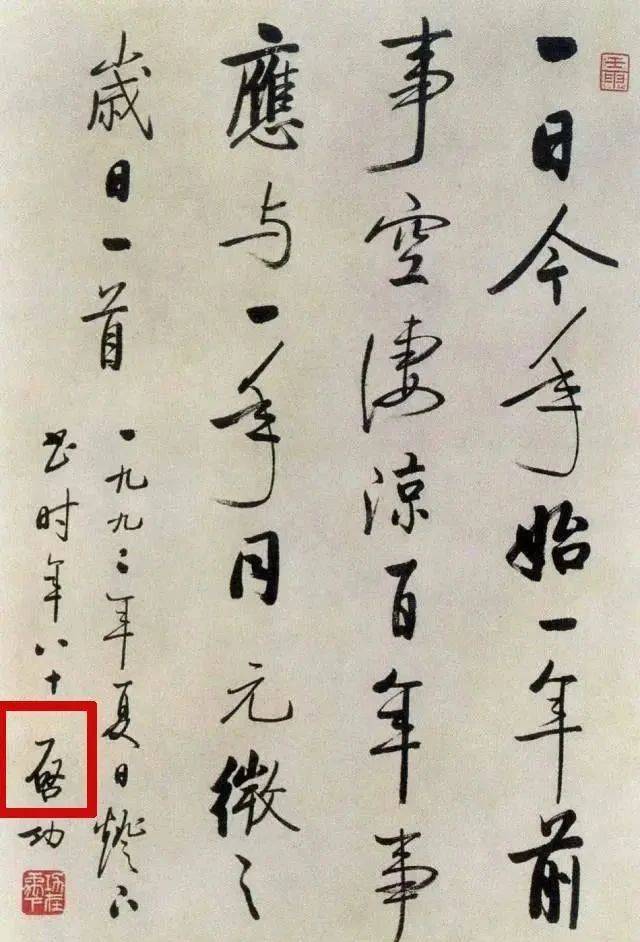 一日今年始一年前
事空凄涼百年事
應与一年同元微之
歲日一首
一九九二年夏日燈下
书时年八十启功